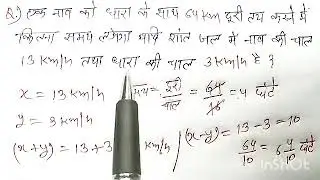 Q.) एक नाव को धारा के साथ 64 km दूरी तय करने में
कितना समय लगेगा यदि शांत जल में नाव की चाल
13 km/h तथा धारा की चाल 3 km/h है ?
x = 13 km/h
समय = दूरी/चाल = 64/16 = 4 घंटे
y = 3 km/h
(x+y) = 13+3 km/h
(x-y) = 13-3 = 10
64/10 = 6 4/10 घंटे